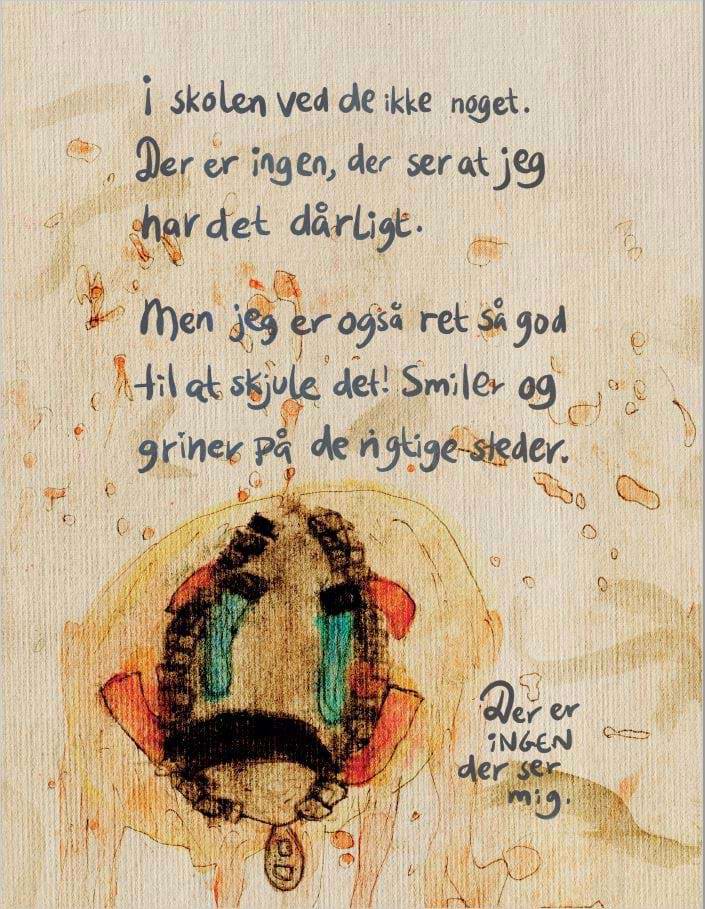 i skolen ved de ikke noget.
Der er ingen, der ser at jeg
har det dårligt.
Men jeg er også ret så god
til at skjule det! Smiler og
griner på de rigtige steder.
Der er
iNGEN
der ser
mig.